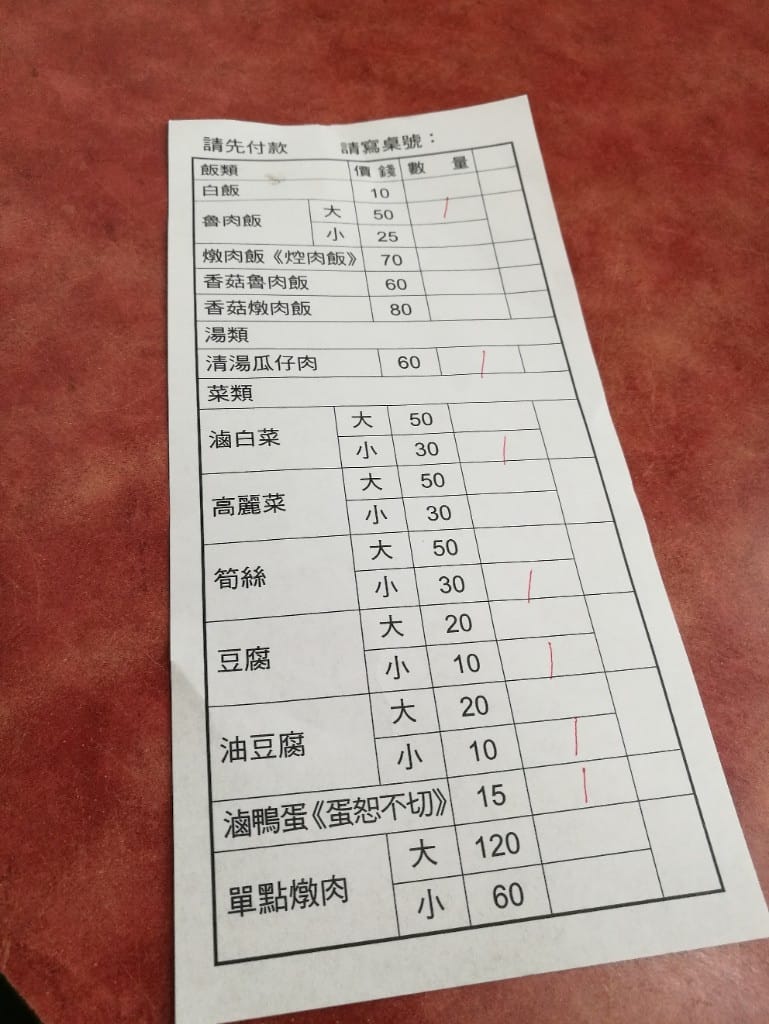 請先付款 請寫桌號：
飯類 價錢 數量
白飯 10
魯肉飯 大 50 /
小 25
燉肉飯《焢肉飯》 70
香菇魯肉飯 60
香菇燉肉飯 80
湯類
清湯瓜仔肉 60 /
菜類
滷白菜 大 50
小 30 /
高麗菜 大 50
小 30
筍絲 大 50
小 30 /
豆腐 大 20
小 10 /
油豆腐 大 20
小 10 /
滷鴨蛋《蛋恕不切》 15 /
單點燉肉 大 120
小 60